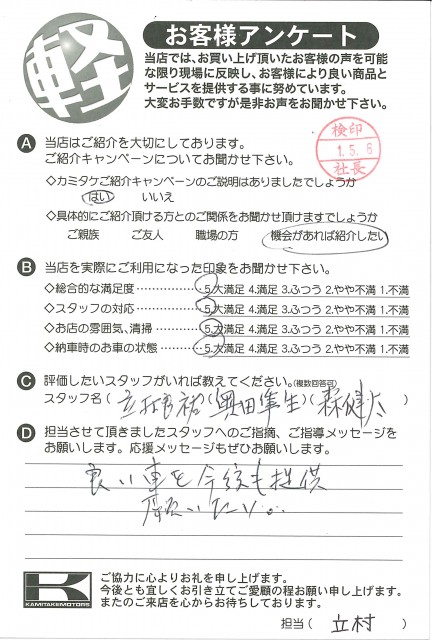 軽
お客様アンケート
当店では、お買い上げ頂いたお客様の声を可能
な限り現場に反映し、お客様により良い商品と
サービスを提供する事に努めています。
大変お手数ですが是非お声をお聞かせ下さい。
検印
1.5.6
社長
A 当店はご紹介を大切にしております。
ご紹介キャンペーンについてお聞かせ下さい。
◇カミタケご紹介キャンペーンのご説明はありましたでしょうか
はい いいえ
◇具体的にご紹介頂ける方とのご関係をお聞かせ頂けますでしょうか
ご親族 ご友人 職場の方 機会があれば紹介したい
B 当店を実際にご利用になった印象をお聞かせ下さい。
◇総合的な満足度 5.大満足 4.満足 3.ふつう 2.やや不満 1.不満
◇スタッフの対応 5.大満足 4.満足 3.ふつう 2.やや不満 1.不満
◇お店の雰囲気、清掃 5.大満足 4.満足 3.ふつう 2.やや不満 1.不満
◇納車時のお車の状態 5.大満足 4.満足 3.ふつう 2.やや不満 1.不満
C 評価したいスタッフがいれば教えてください。(複数回答可)
スタッフ名(立村 祐)(奥田隼生)(森健太)
D 担当させて頂きましたスタッフへのご指摘、ご指導メッセージを
お願いします。応援メッセージもぜひお願いします。
良い車を今後も提供
願いたい。
K
KAMITAKEMOTORS
ご協力に心よりお礼を申し上げます。
今後とも宜しくお引き立てご愛顧の程お願い申し上げます。
またのご来店を心からお待ちしております。
担当(立村)